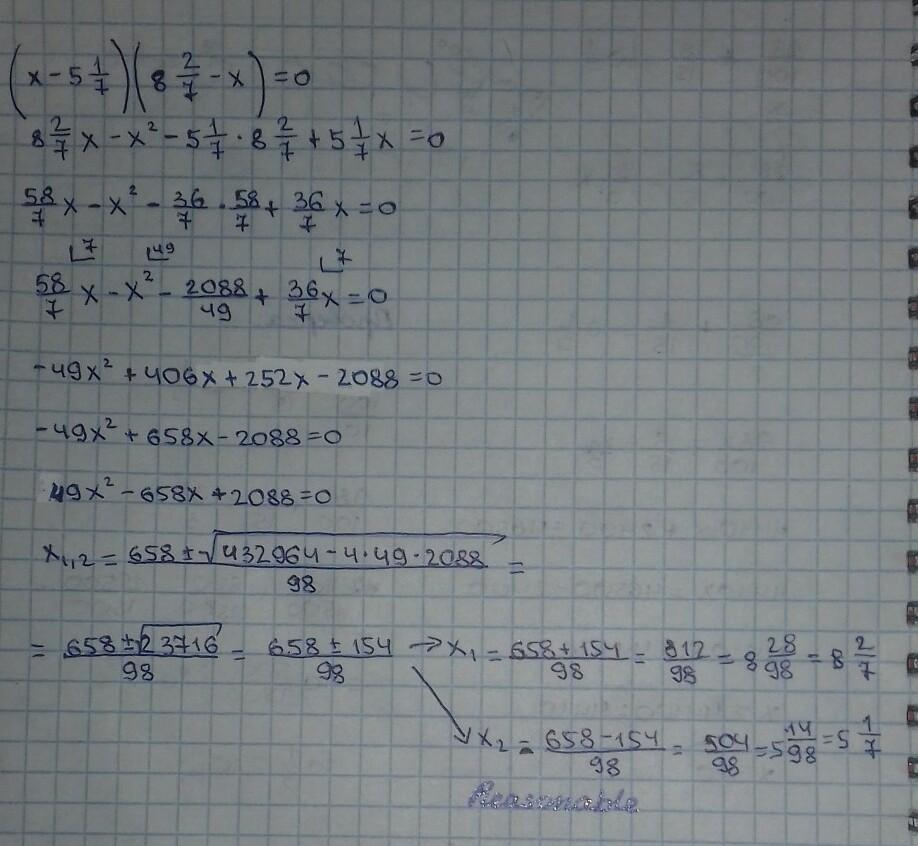 (x - 5 1/7)(8 2/7 - x) = 0
8 2/7 x - x² - 5 1/7 · 8 2/7 + 5 1/7 x = 0
58/7 x - x² - 36/7 · 58/7 + 36/7 x = 0
⌊7 ⌊49 ⌊7
58/7 x - x² - 2088/49 + 36/7 x = 0
-49x² + 406x + 252x - 2088 = 0
-49x² + 658x - 2088 = 0
49x² - 658x + 2088 = 0
x₁,₂ = (658 ± √(432964 - 4·49·2088))/98 =
= (658 ± √23716)/98 = (658 ± 154)/98 → x₁ = (658 + 154)/98 = 812/98 = 8 28/98 = 8 2/7
↘ x₂ = (658 - 154)/98 = 504/98 = 5 14/98 = 5 1/7
Reasonable